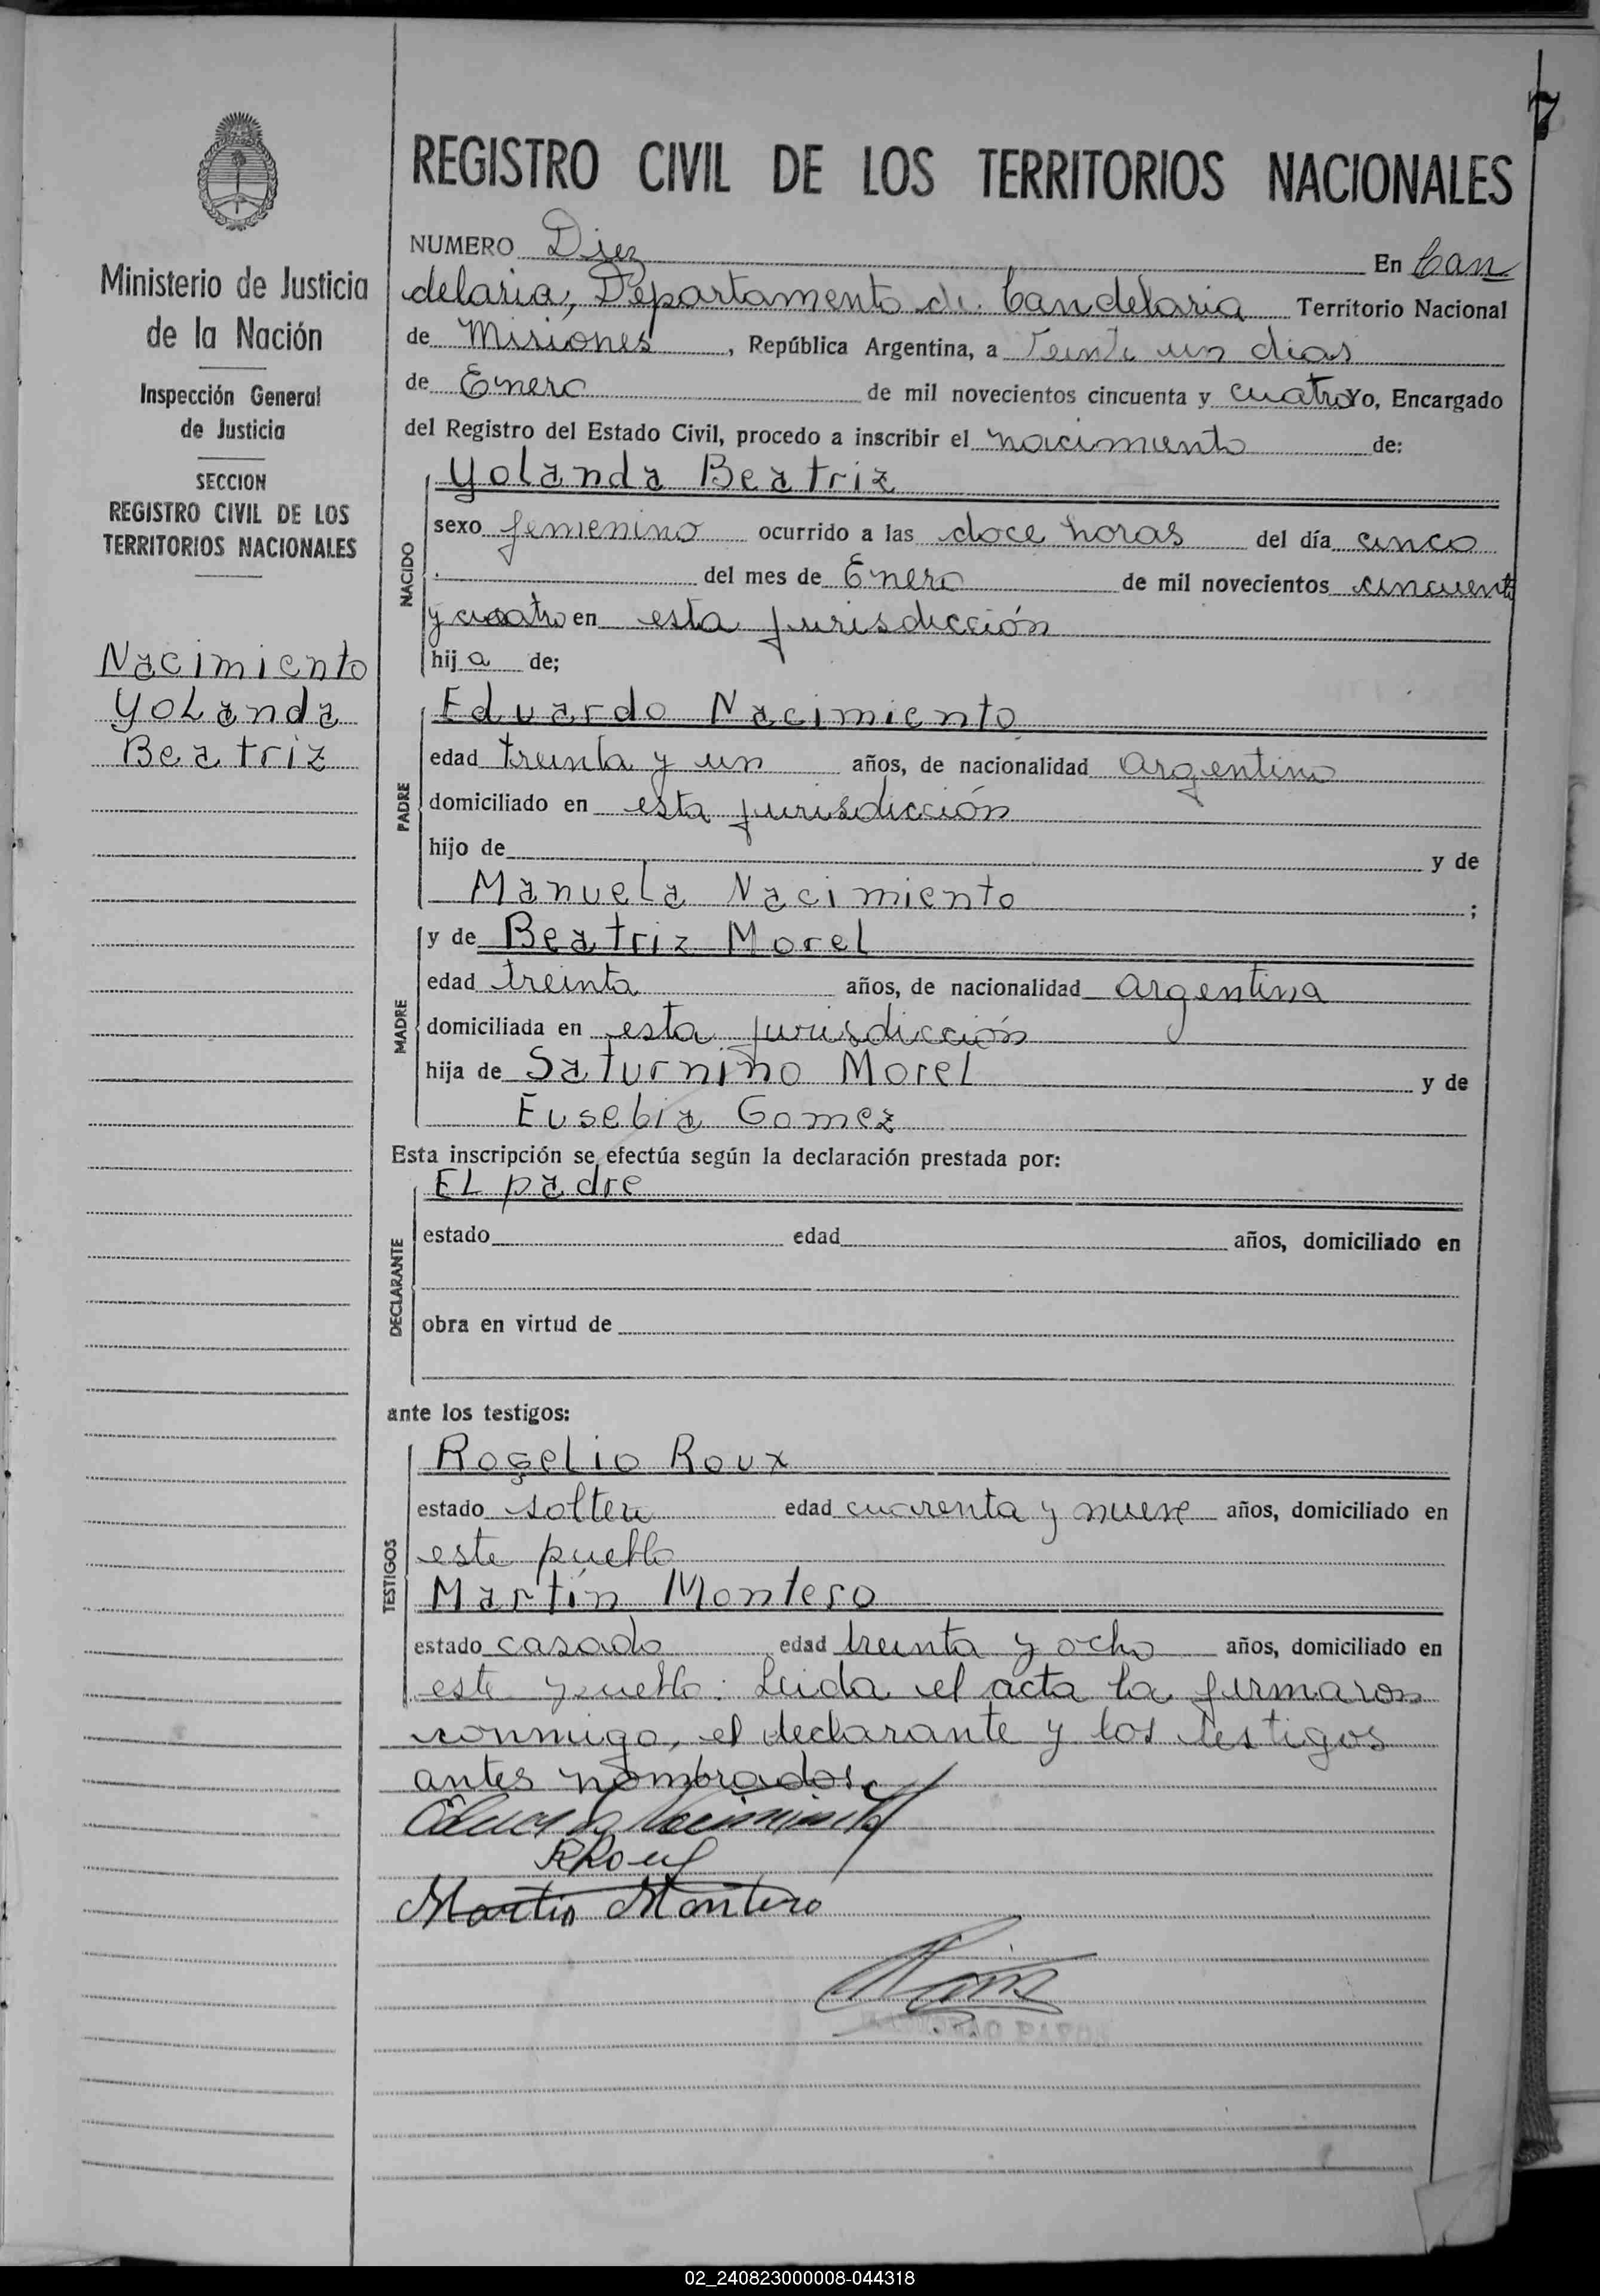 7
Ministerio de Justicia
de la Nación
Inspección General
de Justicia
SECCION
REGISTRO CIVIL DE LOS
TERRITORIOS NACIONALES
Nacimiento
Yolanda
Beatriz
REGISTRO CIVIL DE LOS TERRITORIOS NACIONALES
NUMERO Diez En Can
delaria, Departamento de Candelaria Territorio Nacional
de Misiones, República Argentina, a Veinte un dias
de Enero de mil novecientos cincuenta y cuatro Yo, Encargado
del Registro del Estado Civil, procedo a inscribir el nacimiento de:
NACIDO
Yolanda Beatriz
sexo femenino ocurrido a las doce horas del día cinco
del mes de Enero de mil novecientos cincuenta
y cuatro en esta jurisdicción
hij a de;
PADRE
Eduardo Nacimiento
edad treinta y un años, de nacionalidad Argentino
domiciliado en esta jurisdicción
hijo de y de
Manuela Nacimiento ;
MADRE
y de Beatriz Morel
edad treinta años, de nacionalidad Argentina
domiciliada en esta jurisdicción
hija de Saturnino Morel y de
Eusebia Gomez
Esta inscripción se efectúa según la declaración prestada por:
DECLARANTE
El padre
estado edad años, domiciliado en
obra en virtud de
ante los testigos:
TESTIGOS
Rogelio Roux
estado soltero edad cuarenta y nueve años, domiciliado en
este pueblo
Martín Montero
estado casado edad treinta y ocho años, domiciliado en
este pueblo: Leida el acta la firmaron
conmigo, el declarante y los testigos
antes nombrados.
Eduardo Nacimiento
RRoux
Martin Montero
02_240823000008-044318